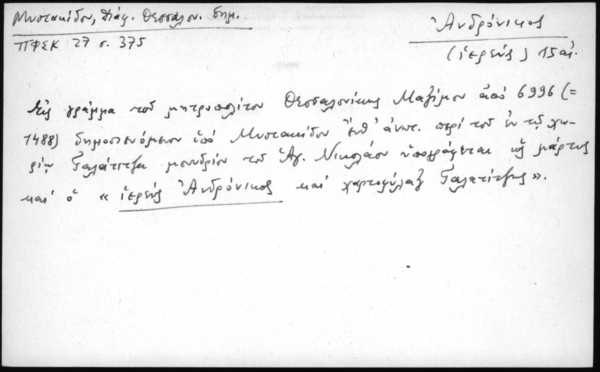 Μυστακίδου, Διάφ. Θεσσαλον. σημ.
ΠΦΣΚ 27 σ. 375
Ἀνδρόνικος
(ἱερεύς) 15 αἰ.
Εἰς γράμμα τοῦ μητροπολίτου Θεσσαλονίκης Μαξίμου ἀπὸ 6996 (=
1488) δημοσιευόμενον ὑπὸ Μυστακίδου ἔνθ' ἀνωτ. περὶ τοῦ ἐν τῷ χω-
ρίῳ Γαλάτιτζα μονυδρίου τοῦ Ἁγ. Νικολάου ὑπογράφεται ὡς μάρτυς
καὶ ὁ « ἱερεὺς Ἀνδρόνικος καὶ χαρτοφύλαξ Γαλατίτζης ».